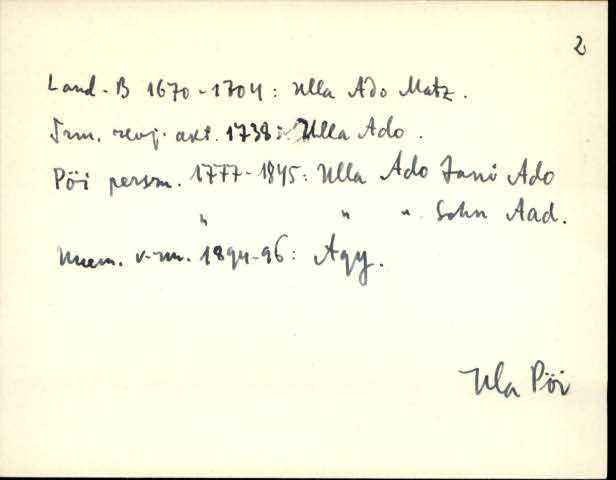 2
Land-B 1670-1704: Ulla Ado Matz.
rev. akt. 1738: Ulla Ado.
Pöi person. 1777-1845: Ulla Ado Jani Ado
" " " Sohn Aad.
v-m. 1894-96: Aqy.
Ula Pöi